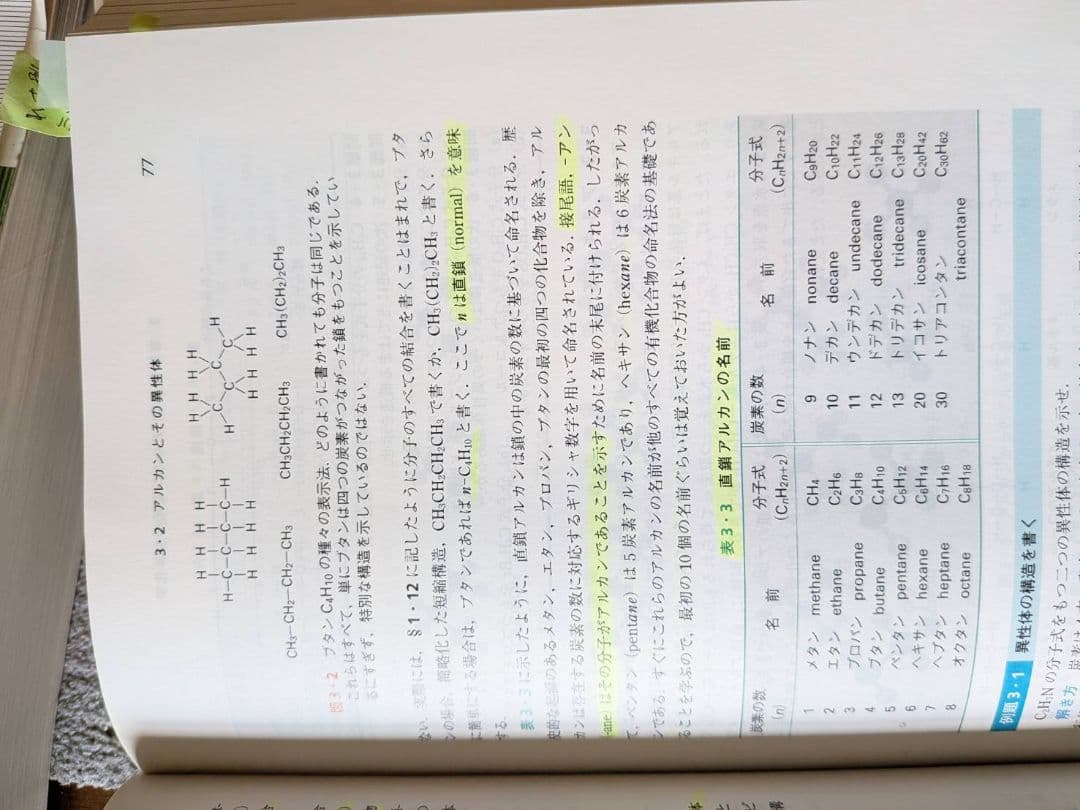 3・2 アルカンとその異性体
77
H H H H
H—C—C—C—C—H
H H H H
CH3—CH2—CH2—CH3
CH3CH2CH2CH3
CH3(CH2)2CH3
図3・2 ブタン C4H10 の種々の表示法．どのように書かれても分子は同じである．
これらはすべて，単にブタンは四つの炭素がつながった鎖をもつことを示してい
るにすぎず，特別な構造を示しているのではない．
ない．実際には，§1・12 に記したように分子のすべての結合を書くことはまれで，ブタ
ンの場合，簡略化した短縮構造，CH3CH2CH2CH3 で書くか，CH3(CH2)2CH3 と書く．さら
に簡単にする場合は，ブタンであれば n-C4H10 と書く．ここで n は直鎖（normal）を意味
する．
表3・3に示したように，直鎖アルカンは鎖の中の炭素の数に基づいて命名される．歴
史的な起源のあるメタン，エタン，プロパン，ブタンの最初の四つの化合物を除き，アル
カンは存在する炭素の数に対応するギリシャ数字を用いて命名されている．接尾語，-アン
-ane）はその分子がアルカンであることを示すために名前の末尾に付けられる．したがっ
て，ペンタン（pentane）は5炭素アルカンであり，ヘキサン（hexane）は6炭素アルカ
ンである．すぐにこれらのアルカンの名前が他のすべての有機化合物の命名法の基礎であ
ることを学ぶので，最初の10個の名前ぐらいは覚えておいた方がよい．
表3・3 直鎖アルカンの名前
炭素の数 (n) 名 前 分子式 (CnH2n+2) 炭素の数 (n) 名 前 分子式 (CnH2n+2)
1 メタン methane CH4 9 ノナン nonane C9H20
2 エタン ethane C2H6 10 デカン decane C10H22
3 プロパン propane C3H8 11 ウンデカン undecane C11H24
4 ブタン butane C4H10 12 ドデカン dodecane C12H26
5 ペンタン pentane C5H12 13 トリデカン tridecane C13H28
6 ヘキサン hexane C6H14 20 イコサン icosane C20H42
7 ヘプタン heptane C7H16 30 トリアコンタン triacontane C30H62
8 オクタン octane C8H18
例題3・1 異性体の構造を書く
C2H7N の分子式をもつ二つの異性体の構造を示せ．
解き方